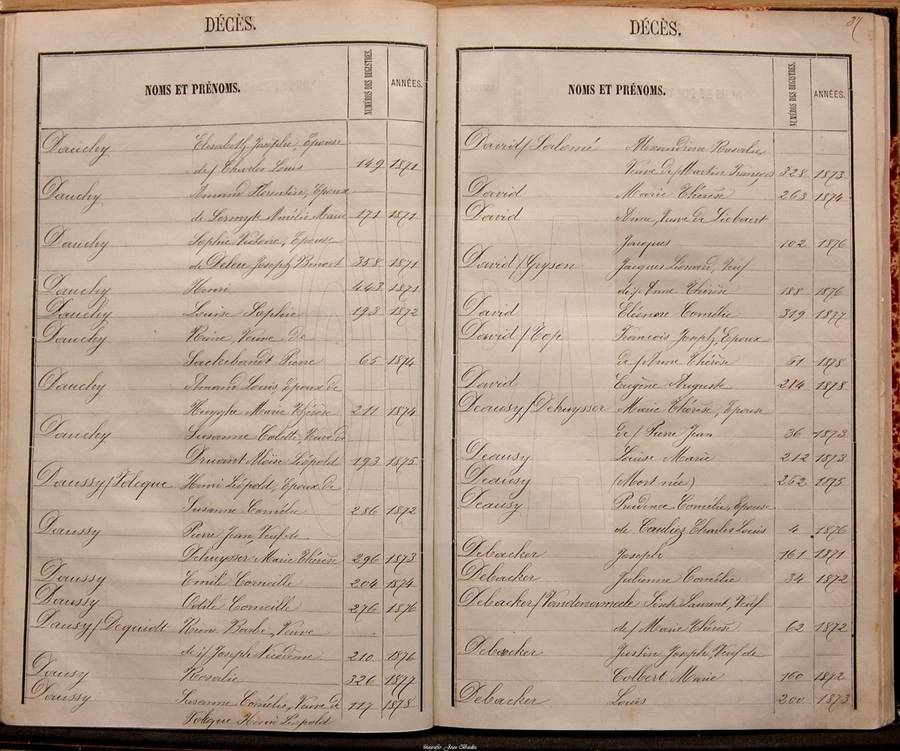 DÉCÈS.
NOMS ET PRÉNOMS. NUMÉROS DES REGISTRES. ANNÉES.
Dauchy Elisabeth Josèphe, Epouse
de/ Charles Louis 149 1871
Dauchy Amand Florentin, Epoux
de Marie 171 1871
Dauchy Sophie Victoire, Epouse
de Deleu Joseph Benoit 358 1871
Dauchy Henri 443 1871
Dauchy Louise Sophie 193 1872
Dauchy Reine, Veuve de
Pierre 65 1874
Dauchy Amand Louis, Epoux de
Huyghe Marie Thérèse 211 1874
Dauchy Susanne Colette, Veuve de
Druant Aloïse Léopold 193 1875
Daussy/ Henri Léopold, Epoux de
Susanne Cornélie 286 1872
Daussy Pierre Jean, Veuf de
Dehuysser Marie Thérèse 296 1873
Daussy Emile Corneille 204 1874
Daussy Odile Corneille 276 1876
Dausy/ Dequidt Reine Barbe, Veuve
de/ Joseph Nicodème 210 1876
Dausy Rosalie 326 1877
Daussy Susanne Cornélie, Veuve de 117 1878
Henri Léopold
DÉCÈS. 37
NOMS ET PRÉNOMS. NUMÉROS DES REGISTRES. ANNÉES.
David/ Salomé Alexandrine Rosalie,
Veuve de/ Martin François 328 1873
David Marie Thérèse 263 1874
David Anne, Veuve de Liebaert
Jacques 102 1876
David/ Gryson Jacques Léonard, Veuf
de/ Anne Thérèse 188 1876
David Eléonore Cornélie 319 1877
David/ Top François Joseph, Epoux
de/ Anne Thérèse 61 1878
David Eugène Auguste 214 1878
Deausy/ Dehuysser Marie Thérèse, Epouse
de/ Pierre Jean 36 1873
Deausy Louise Marie 212 1873
Deausy (Mort née) 262 1875
Deausy Prudence Cornélie, Epouse
de Cauliez Charles Louis 4 1876
Debacker Joseph 161 1871
Debacker Julienne Cornélie 34 1872
Debacker/ Vandenameele Laurent, Veuf
de/ Marie Thérèse 62 1872
Debacker Justin Joseph, Veuf de
Colbert Marie 160 1872
Debacker Louis 200 1873